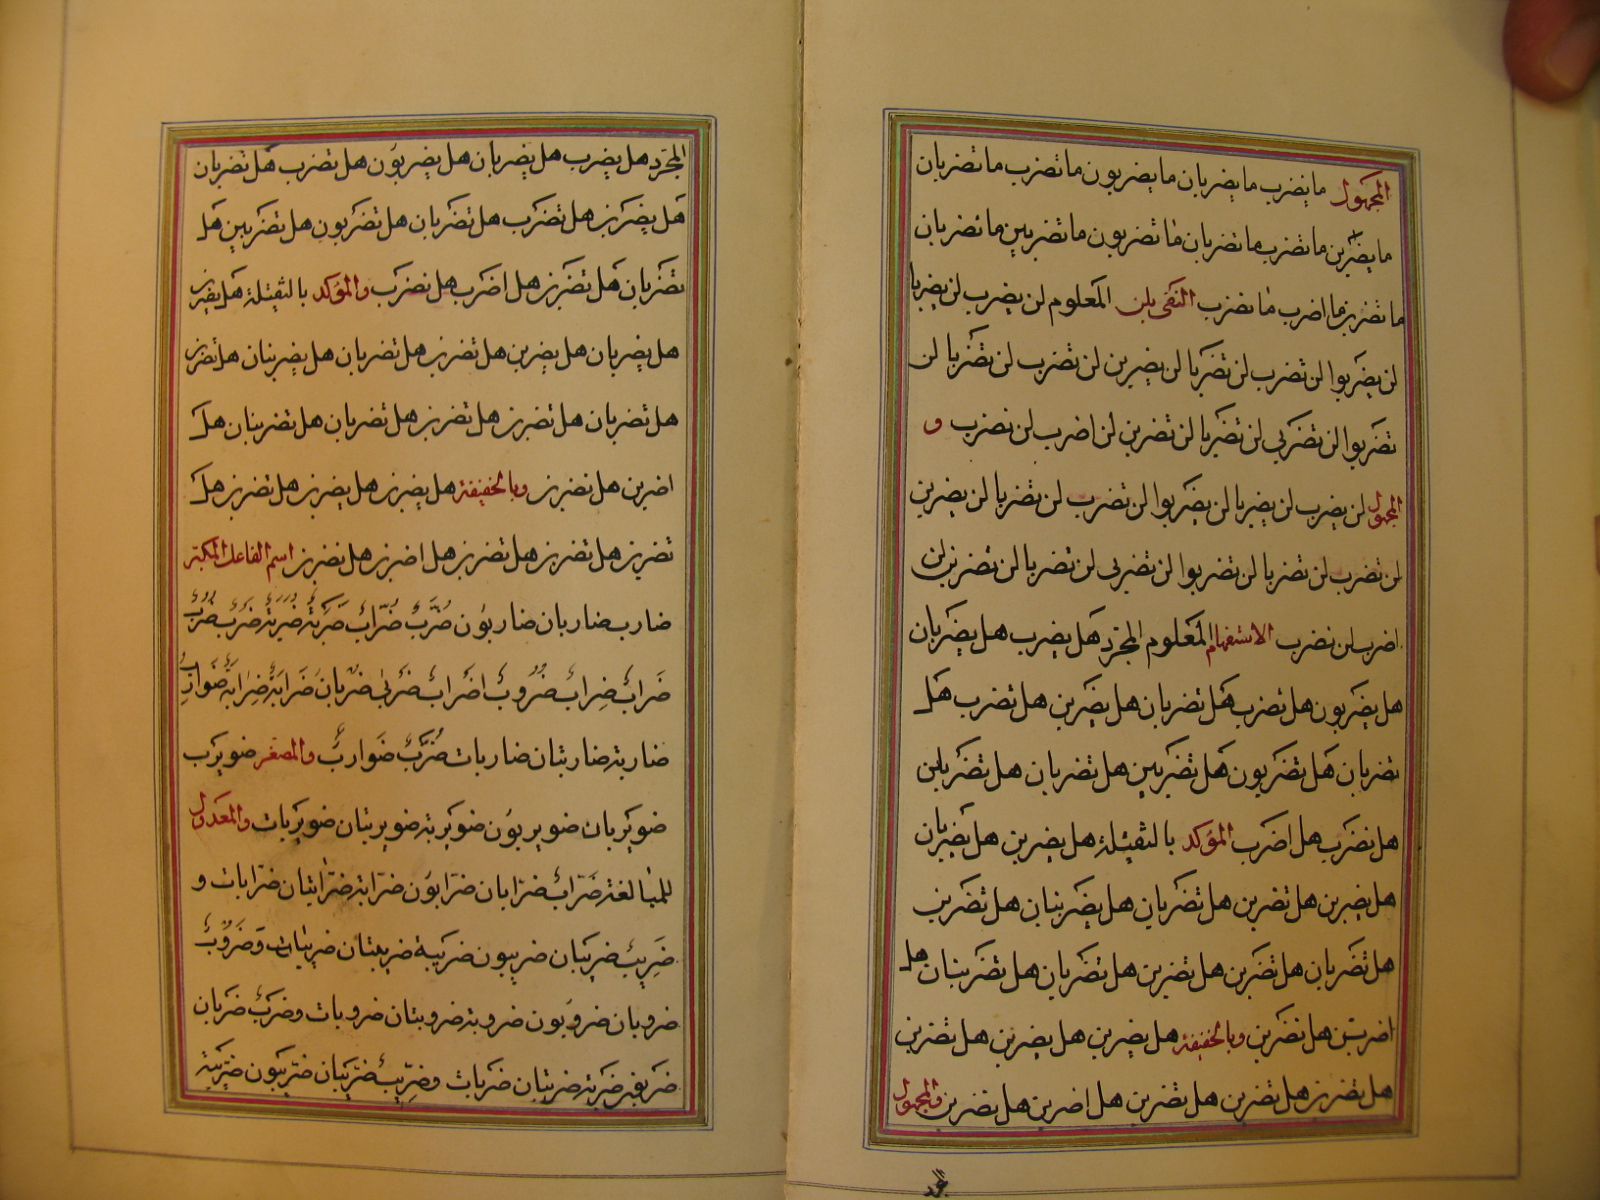 المجهول ما يضرب ما يضربان ما يضربون ما تضرب ما تضربان
ما يضربن ما تضرب ما تضربان ما تضربون ما تضربين ما تضربان
ما تضربن ما اضرب ما نضرب النفى بلن المعلوم لن يضرب لن يضربا
لن يضربوا لن تضرب لن تضربا لن يضربن لن تضرب لن تضربا لن
تضربوا لن تضربي لن تضربا لن تضربن لن اضرب لن نضرب و
المجهول لن يضرب لن يضربا لن يضربوا لن تضرب لن تضربا لن يضربن
لن تضرب لن تضربا لن تضربوا لن تضربي لن تضربا لن تضربن لن
اضرب لن نضرب الاستفهام المعلوم المجرد هل يضرب هل يضربان
هل يضربون هل تضرب هل تضربان هل يضربن هل تضرب هل
تضربان هل تضربون هل تضربين هل تضربان هل تضربن
هل نضرب هل اضرب المؤكد بالثقيلة هل يضربن هل يضربان
هل يضربن هل تضربن هل تضربان هل يضربنان هل تضربن
هل تضربان هل تضربن هل تضربن هل تضربان هل تضربنان هل
اضربن هل نضربن وبالخفيفة هل يضربن هل يضربن هل تضربن
هل تضربن هل تضربن هل تضربن هل اضربن هل نضربن والمجهول
المجرد هل يضرب هل يضربان هل يضربون هل تضرب هل تضربان
هل يضربن هل تضرب هل تضربان هل تضربون هل تضربين هل
تضربان هل تضربن هل اضرب هل نضرب والمؤكد بالثقيلة هل يضربن
هل يضربان هل يضربن هل تضربن هل تضربان هل يضربنان هل تضربن
هل تضربان هل تضربن هل تضربن هل تضربان هل تضربنان هل
اضربن هل نضربن وبالخفيفة هل يضربن هل يضربن هل تضربن هل
تضربن هل تضربن هل تضربن هل اضربن هل نضربن اسم الفاعل المكبر
ضارب ضاربان ضاربون ضُرَّبٌ ضُرّابٌ ضَرَبَةٌ ضُربَة ضُرَبٌ ضُرُبٌ
ضَرابٌ ضِرابٌ ضُرُوبٌ اضرابٌ ضَربى ضُربانٌ ضَرابَةٌ ضِرابَةٌ ضَوارِبُ
ضاربة ضاربتان ضاربات ضُرَّبٌ ضَوارِبُ والمصغر ضويرب
ضويربان ضويربون ضويربة ضويربتان ضويربات والمعدول
للمبالغة ضَرّابٌ ضرّابان ضرّابون ضرّابة ضرّابتان ضرّابات و
ضَرِيبٌ ضريبان ضريبون ضريبة ضريبتان ضريبات وَضَرُوبٌ
ضروبان ضروبون ضروبة ضروبتان ضروبات وضربٌ ضربان
ضربون ضربة ضربتان ضربات وضِرّيبٌ ضرّيبان ضرّيبون ضرّيبة